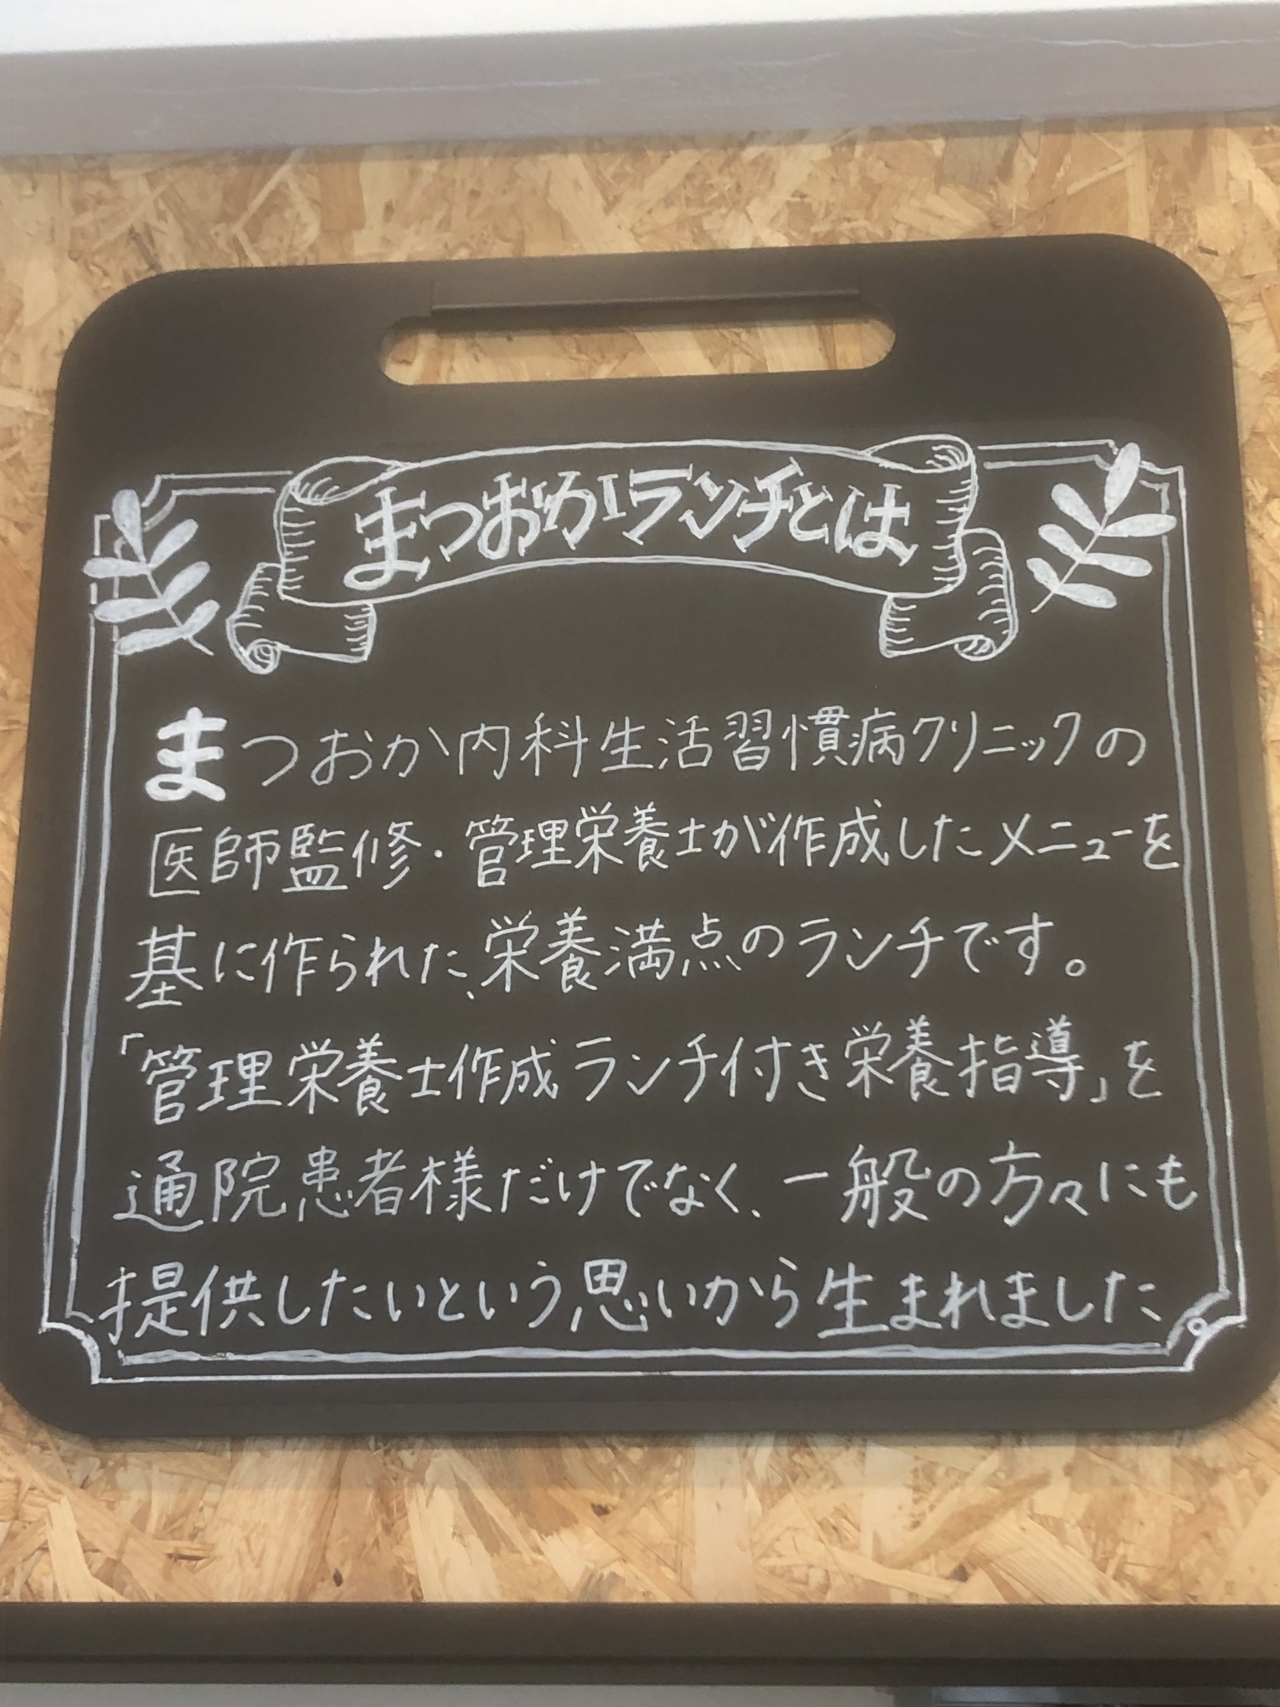 まつおかランチとは
まつおか内科生活習慣病クリニックの
医師監修・管理栄養士が作成したメニューを
基に作られた、栄養満点のランチです。
「管理栄養士作成ランチ付き栄養指導」を
通院患者様だけでなく、一般の方々にも
提供したいという思いから生まれました。